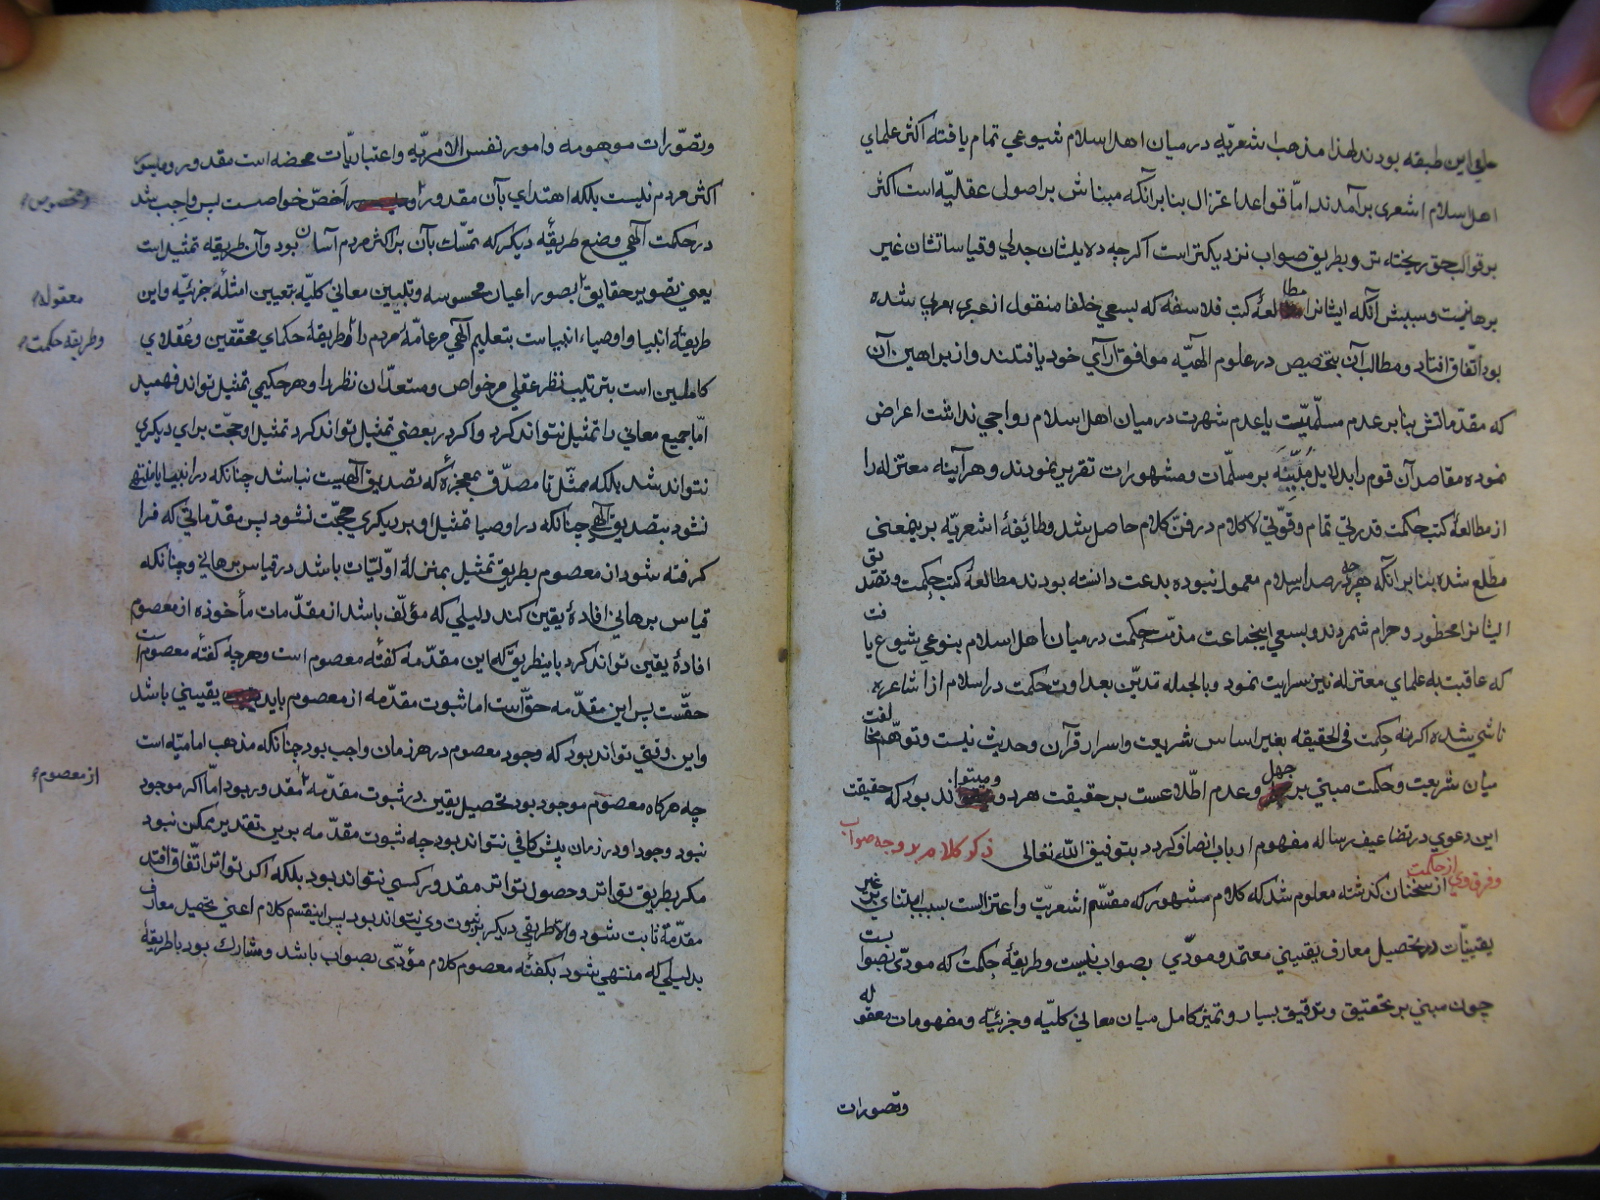 حلي اين طبقه بودند لهذا مذهب اشعريّه در ميان اهل اسلام شيوعي تمام يافته اكثر علماي
اهل اسلام اشعرى برآمدند امّا قواعد اعتزال بنا بر آنكه مبناش بر اصول عقليّه است اكثر
بر قوالب حق ريخته‌تر و بطريق صواب نزديكتر است اكرچه دلايلشان جدلي و قياساتشان غير
برهانيست و سببش آنكه ايشانرا مطالعهٔ كتب فلاسفه كه بسعي خلفا منقول از عبرى بعربي شده
بود اتّفاق افتاد و مطالب آن بتخصيص در علوم الهيّه موافق آراي خود يافتند و از براهين آن
كه مقدّماتش بنا بر عدم مسلّميّت يا عدم شهرت در ميان اهل اسلام رواجي نداشت اعراض
نموده مقاصد آن قوم را بدلايل مُبتَنِيَه بر مسلّمات و مشهورات تقرير نمودند و هر آينه معتزله را
از مطالعهٔ كتب حكمت قدرتي تمام و قوّتي لا كلام در فن كلام حاصل شد و طائفهٔ اشعريّه بر ينمعنى
مطّلع شده بنا بر آنكه هرچه در صدر اسلام معمول نبوده بدعت دانسته بودند مطالعهٔ كتب حكمت و تصديق
ايشانرا محظور و حرام شمردند و بسعي اينجماعت مذمّت حكمت در ميان اهل اسلام بنوعي شيوع يافت
كه عاقبت به علماي معتزله نيز سرايت نمود و بالجمله تديّن بعداوت حكمت در اسلام از اشاعره
ناشي شده اكرنه حكمت في الحقيقه بغير اساس شريعت و اسرار قرآن و حديث نيست و توهّم مخالفت
ميان شريعت و حكمت مبتني بر جهل و عدم اطّلاعست بر حقيقت هردو و ميتواند بود كه حقيقت
اين دعوي در تضاعيف رساله مفهوم ارباب انصاف كردد بتوفيق اللّه تعالى ذكر كلام بر وجه صواب
و فرق وي از حكمت از سخنان كذشته معلوم شد كه كلام مشهور كه مقسّم اشعريت و اعتزالست بسبب ابتناي بر غير
يقينيّات در تحصيل معارف يقيني معتمد و مودّي بصواب نيست و طريقهٔ حكمت كه مودّى بصوابست
چون مبني بر تحقيق و تدقيق بسيار و تميز كامل ميان معاني كليّه و جزئيّه و مفهومات معقوله
و تصورات
و تصوّرات موهومه و امور نفس الامريّه و اعتباريّات محضه است مقدور و ميسور
اكثر مردم نيست بلكه اهتداي بآن مقدور اَخصّ خواصست پس واجب شد
و مخصوص
در حكمت آلهي وضع طريقهٔ ديكر كه تمسّك بآن بر اكثر مردم آسان بود و آن طريقه تمثيل است
يعني تصوير حقايق بصور اعيان محسوسه و تبيين معاني كليّه بتعيين امثلهٔ جزئيّه و اين
معقوله
طريقهٔ انبيا و اوصياء انبياست بتعليم آلهي مر عامّهٔ مردم را طريقهٔ حكماي محقّقين و عُقلاي
و طريقهٔ حكمت
كاملين است بترتيب نظر عقلي مر خواص و مستعدّان نظر را و هر حكيمي تمثيل تواند فهميد
امّا جميع معاني را تمثيل نتواند كرد و اكر در بعضي تمثيل تواند كرد تمثيل او حجّت براي ديكري
نتواند شد بلكه ممثّل تا مصدّق بمعجزهٔ كه تصديق آلهيست نباشد چنانكه در انبيا يا منتهي
نشود بتصديق آلهي چنانكه در اوصيا تمثيل او بر ديكري حجّت نشود پس مقدّماتي كه فرا
كرفته شود از معصوم بطريق تمثيل بمنزلهٔ اوّليّات باشد در قياس برهاني و چنانكه
قياس برهاني افادهٔ يقين كند دليلي كه مؤلّف باشد از مقدّمات مأخوذه از معصوم
افادهٔ يقين تواند كرد باينطريق كه اين مقدّمه كفتهٔ معصوم است و هرچه كفتهٔ معصوم است
حقّست پس اين مقدّمه حقّ است اما ثبوت مقدّمه از معصوم بايد يقيني باشد
و اين وقتي تواند بود كه وجود معصوم در هر زمان واجب بود چنانكه مذهب اماميّه است
از معصوم
چه هركاه معصوم موجود بود تحصيل يقين در ثبوت مقدّمه مقدور بود امّا اكر موجود
نبود وجود او در زمان پيش كافي نتواند بود چه ثبوت مقدّمه برين تقدير ممكن نبود
مكر بطريق تواتر و حصول تواتر مقدور كسي نتواند بود بلكه اكر تواتر اتّفاق افتد
مقدّمه ثابت شود و الا طريقي ديكر بثبوت وي نتواند بود پس اينقسم كلام اعني تحصيل معارف
بدليلي كه منتهي شود بكفتهٔ معصوم كلام مؤدّى بصواب باشد و مشارك بود با طريقهٔ